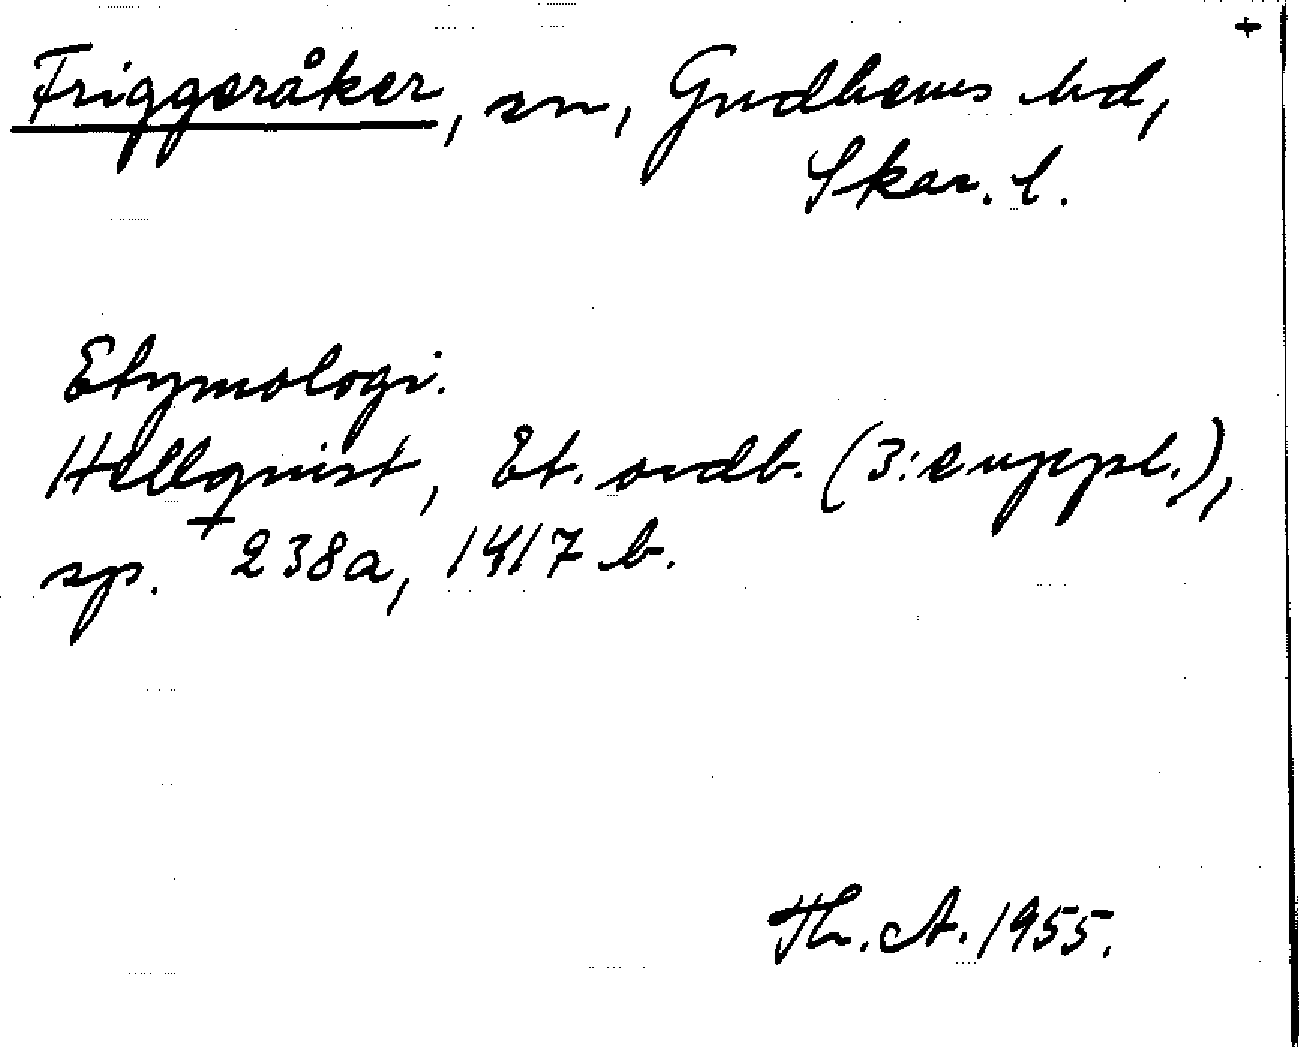 +
Friggeråker, sn, Gudhems hd,
Skar. l.
Etymologi.
Hellquist, Et. ordb. (3: e uppl.),
sp. + 238a, 1417 b.
Th. A. 1955.